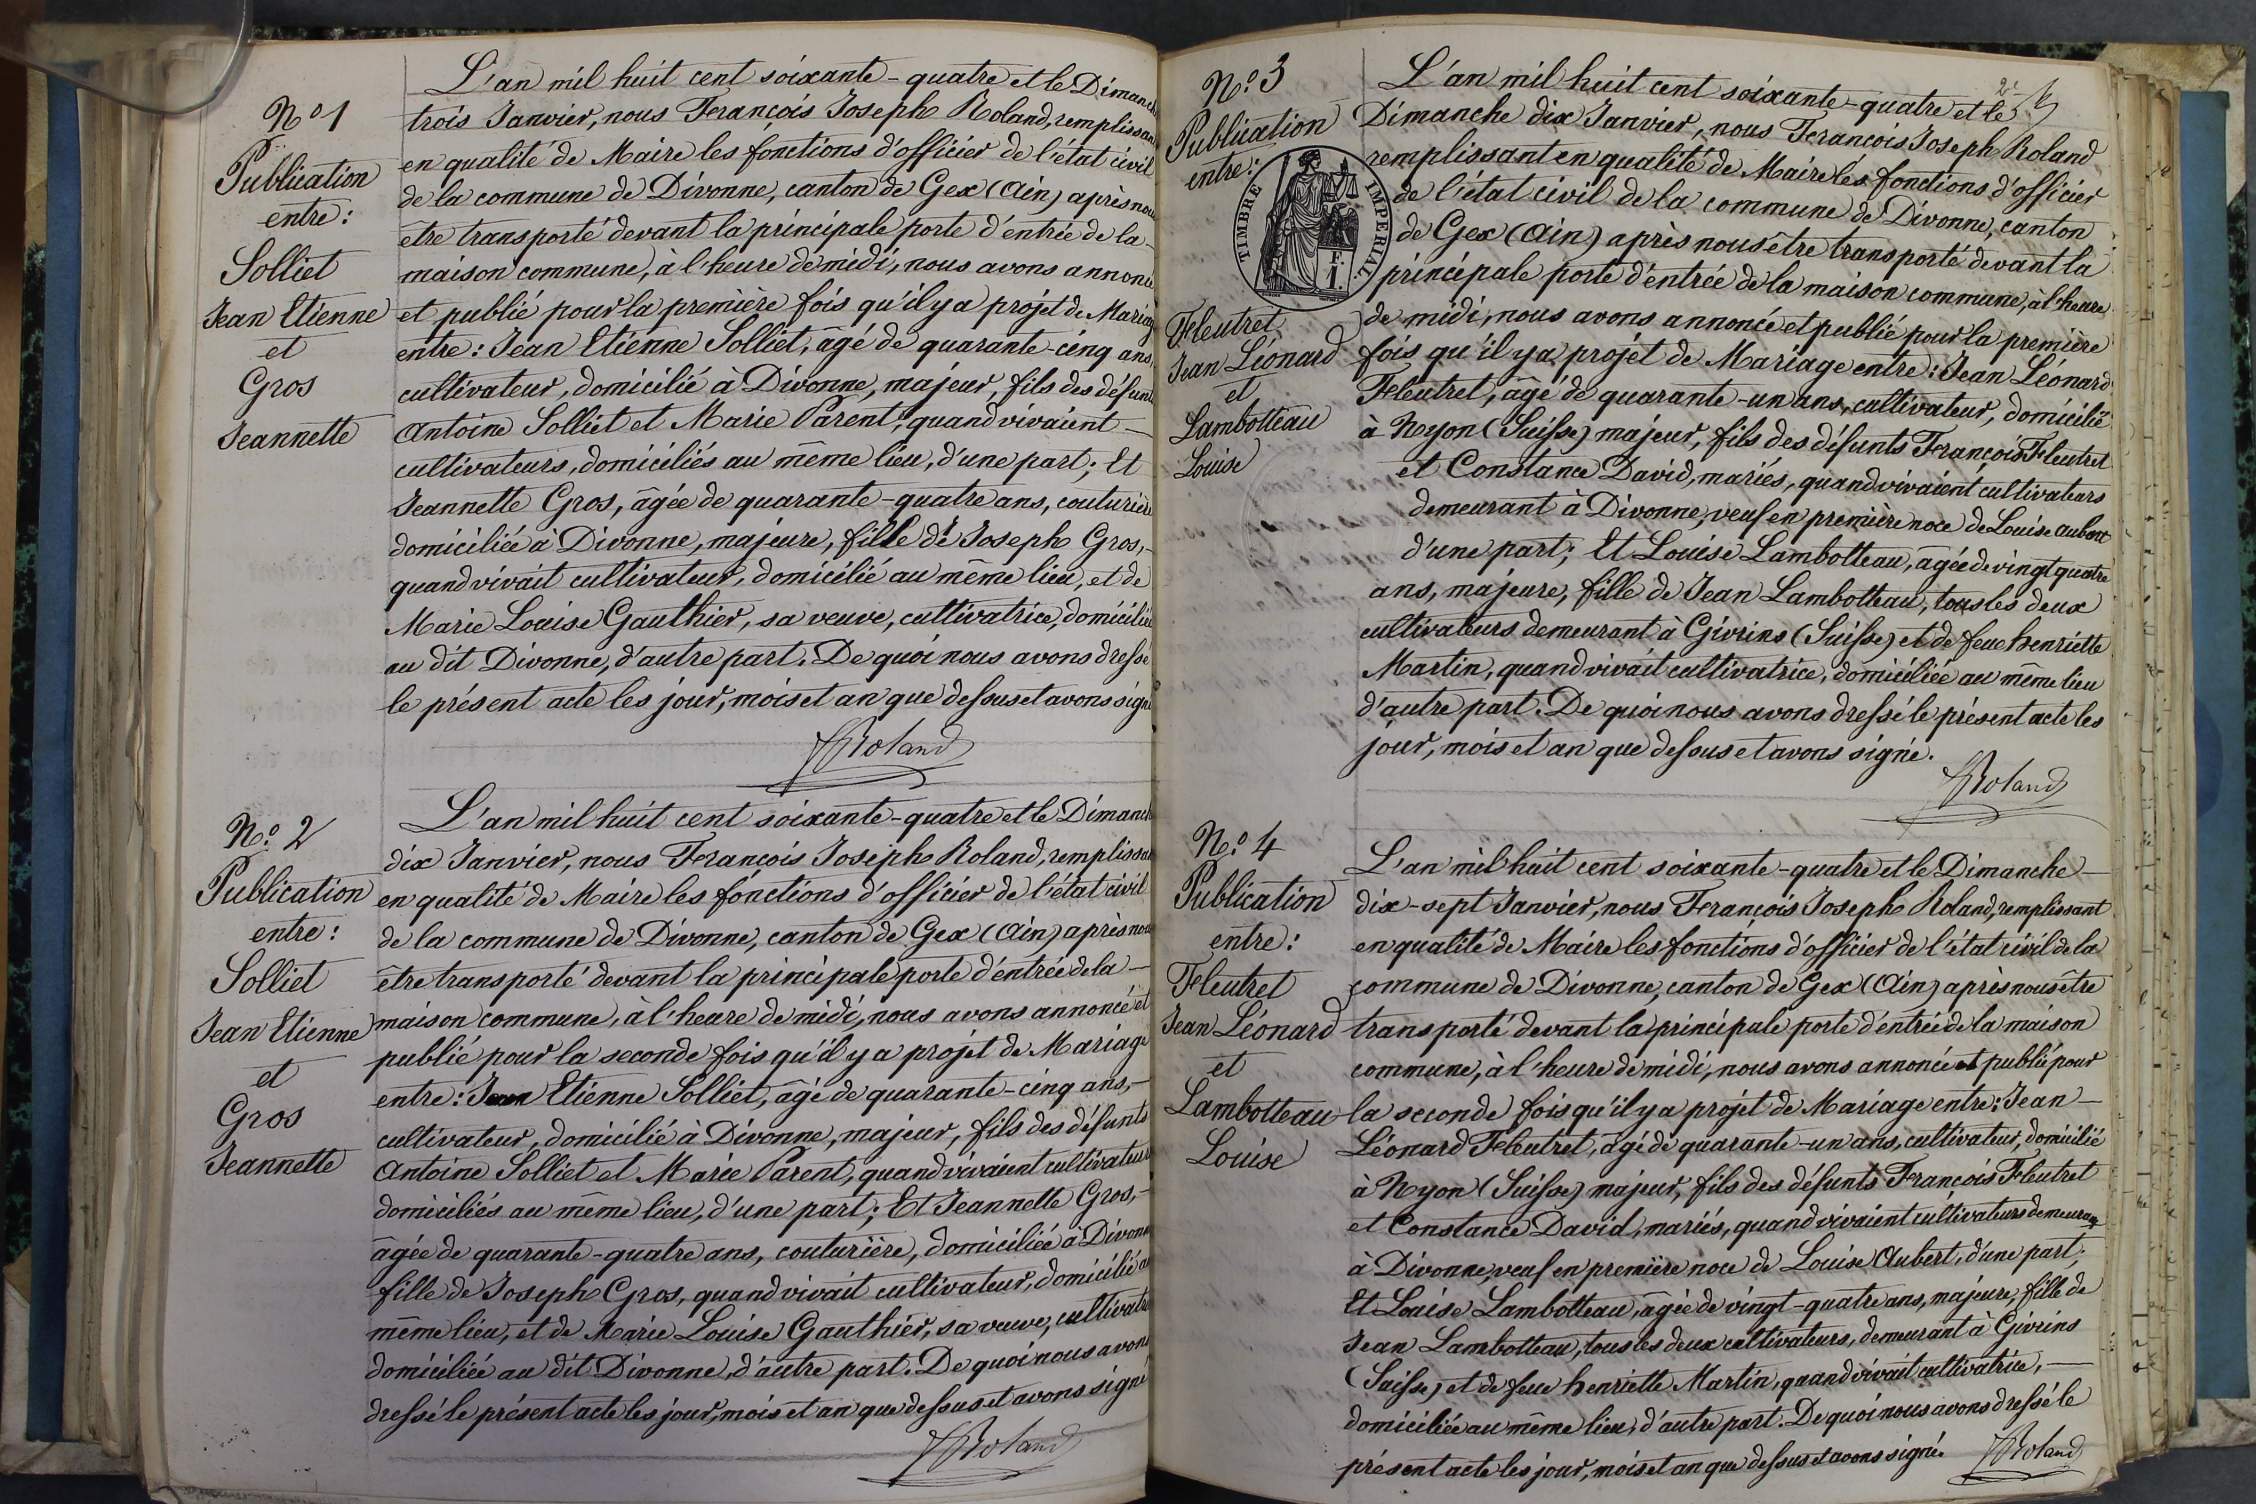 N.o 1
Publication
entre:
Solliet
Jean Etienne
et
Gros
Jeannette
L'an mil huit cent soixante-quatre et le Dimanch
trois Janvier, nous François Joseph Roland, remplissan
en qualité de Maire les fonctions d'officier de l'état civil
de la commune de Divonne, canton de Gex (Ain) après nou
être transporté devant la principale porte d'entrée de la
maison commune, à l'heure de midi, nous avons annoncé
et publié pour la première fois qu'il y a projet de Mariag
entre: Jean Etienne Solliet, âgé de quarante-cinq ans,
cultivateur, domicilié à Divonne, majeur, fils des défunt
Antoine Solliet et Marie Parent, quand vivaient
cultivateurs, domiciliés au même lieu, d'une part; Et
Jeannette Gros, âgée de quarante-quatre ans, couturière
domiciliée à Divonne, majeure, fille de Joseph Gros,
quand vivait cultivateur, domicilié au même lieu, et de
Marie Louise Gauthier, sa veuve, cultivatrice, domiciliée
au dit Divonne, d'autre part. De quoi nous avons dressé
le présent acte les jour, mois et an que dessus et avons signé
Roland
N.o 2
Publication
entre:
Solliet
Jean Etienne
et
Gros
Jeannette
L'an mil huit cent soixante-quatre et le Dimanch
dix Janvier, nous François Joseph Roland, remplissan
en qualité de Maire les fonctions d'officier de l'état civil
de la commune de Divonne, canton de Gex (Ain) après nou
être transporté devant la principale porte d'entrée de la
maison commune, à l'heure de midi, nous avons annoncé et
publié pour la seconde fois qu'il y a projet de Mariage
entre: Jean Etienne Solliet, âgé de quarante-cinq ans,
cultivateur, domicilié à Divonne, majeur, fils des défunts
Antoine Solliet et Marie Parent, quand vivaient cultivateurs
domiciliés au même lieu, d'une part; Et Jeannette Gros,
âgée de quarante-quatre ans, couturière, domiciliée à Divonne
fille de Joseph Gros, quand vivait cultivateur, domicilié au
même lieu, et de Marie Louise Gauthier, sa veuve, cultivatri
domiciliée au dit Divonne, d'autre part. De quoi nous avons
dressé le présent acte les jour, mois et an que dessus et avons signé
Roland
N.o 3
Publication
entre:
TIMBRE IMPÉRIAL
Fleutret
Jean Léonard
et
Lambotteau
Louise
2e
L'an mil huit cent soixante-quatre et le
Dimanche dix Janvier, nous François Joseph Roland
remplissant en qualité de Maire les fonctions d'officier
de l'état civil de la commune de Divonne, canton
de Gex (Ain) après nous être transporté devant la
principale porte d'entrée de la maison commune, à l'heure
de midi, nous avons annoncé et publié pour la première
fois qu'il y a projet de Mariage entre: Jean Léonard
Fleutret, âgé de quarante-un ans, cultivateur, domicilié
à Nyon (Suisse) majeur, fils des défunts François Fleutret
et Constance David, mariés, quand vivaient cultivateurs
demeurant à Divonne, veuf en première noce de Louise Aubert
d'une part; Et Louise Lambotteau, âgée de vingt quatre
ans, majeure, fille de Jean Lambotteau, tous les deux
cultivateurs demeurant à Givrins (Suisse) et de feue henriette
Martin, quand vivait cultivatrice, domiciliée au même lieu
d'autre part. De quoi nous avons dressé le présent acte les
jour, mois et an que dessus et avons signé.
Roland
N.o 4
Publication
entre:
Fleutret
Jean Léonard
et
Lambotteau
Louise
L'an mil huit cent soixante-quatre et le Dimanche
dix-sept Janvier, nous François Joseph Roland, remplissant
en qualité de Maire les fonctions d'officier de l'état civil de la
commune de Divonne, canton de Gex (Ain) après nous être
transporté devant la principale porte d'entrée de la maison
commune, à l'heure de midi, nous avons annoncé et publié pour
la seconde fois qu'il y a projet de Mariage entre: Jean
Léonard Fleutret, âgé de quarante-un ans, cultivateur, domicilié
à Nyon (Suisse) majeur, fils des défunts François Fleutret
et Constance David, mariés, quand vivaient cultivateurs demeurant
à Divonne, veuf en première noce de Louise Aubert, d'une part;
Et Louise Lambotteau, âgée de vingt-quatre ans, majeure, fille de
Jean Lambotteau, tous les deux cultivateurs, demeurant à Givrins
(Suisse) et de feue henriette Martin, quand vivait cultivatrice,
domiciliée au même lieu, d'autre part. De quoi nous avons dressé le
présent acte les jour, mois et an que dessus et avons signé.
Roland